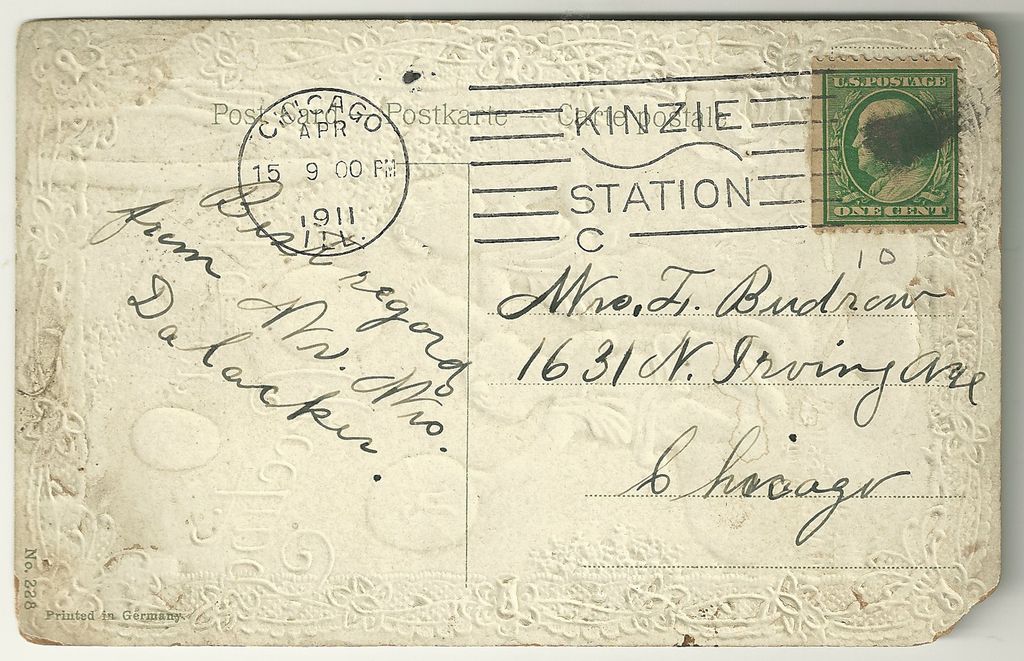 Post Card Postkarte Carte postale
CHICAGO
APR
15 9 00 PM
1911
ILL.
KINZIE
STATION
C
U.S. POSTAGE
ONE CENT
10
Best regards
from Mr. Mrs.
Dalacker.
Mrs. F. Budrow
1631 N. Irving Ave
Chicago
No. 228
Printed in Germany.